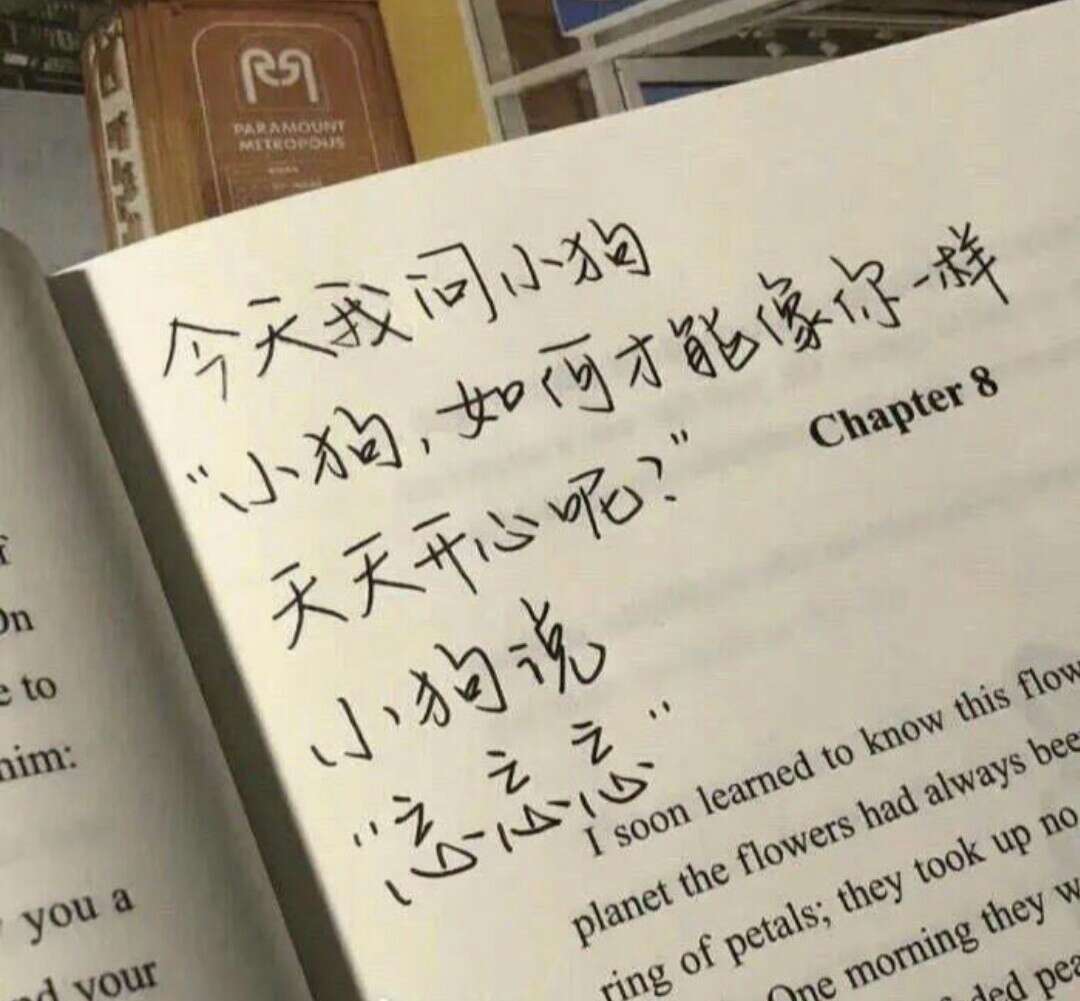 PARAMOUNT
METROPOLIS
今天我问小狗
“小狗,如何才能像你一样
天天开心呢?”
小狗说
“忘忘忘”
Chapter 8
I soon learned to know this flow
planet the flowers had always bee
ring of petals; they took up no
One morning they w
ded pea
On
e to
him:
you a
nd your